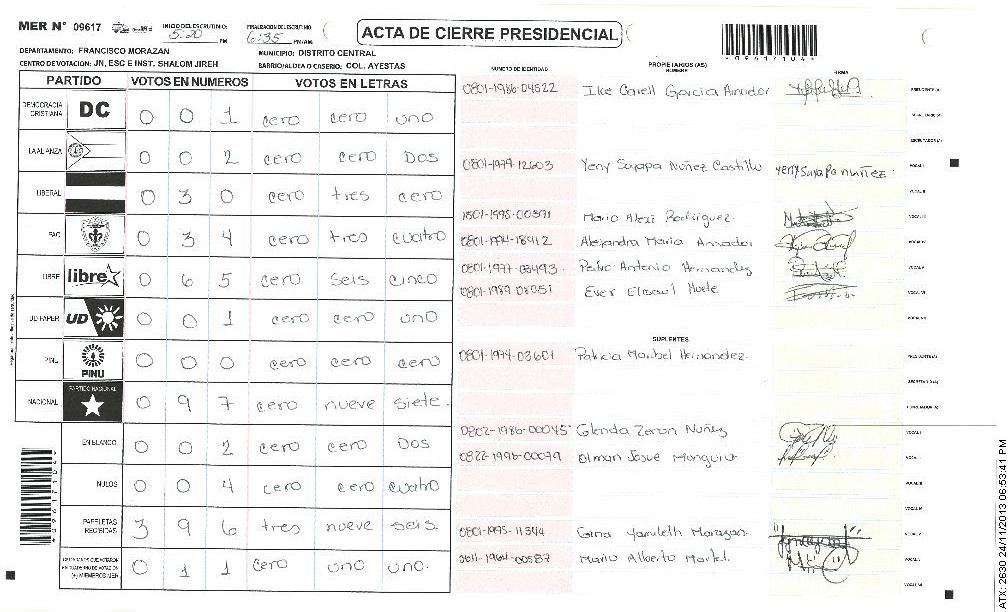 MER N° 09617
INICIO DEL ESCRUTINIO: 5:20 PM
FINALIZACION DEL ESCRUTINIO 6:35 PM/AM
ACTA DE CIERRE PRESIDENCIAL
DEPARTAMENTO: FRANCISCO MORAZAN
MUNICIPIO: DISTRITO CENTRAL
CENTRO DE VOTACION: JN, ESC E INST. SHALOM JIREH
BARRIO/ALDEA O CASERIO: COL. AYESTAS
PARTIDO VOTOS EN NUMEROS VOTOS EN LETRAS
DEMOCRACIA CRISTIANA DC 0 0 1 cero cero uno
LA ALIANZA 0 0 2 cero cero Dos
LIBERAL 0 3 0 cero tres cero
PAC 0 3 4 cero tres cuatro
LIBRE libre 0 6 5 cero seis cinco
UD-FAPER UD 0 0 1 cero cero uno
PINU PINU 0 0 0 cero cero cero
NACIONAL PARTIDO NACIONAL 0 9 7 cero nueve siete.
EN BLANCO 0 0 2 cero cero Dos
NULOS 0 0 4 cero cero cuatro
PAPELETAS RECIBIDAS 3 9 6 tres nueve seis.
(+) MIEMBROS MER 0 1 1 cero uno uno.
NUMERO DE IDENTIDAD PROPIETARIOS (AS) NOMBRE FIRMA
0801-1986-04522 Garcia Amador PRESIDENTE (A)
SECRETARIO (A)
ESCRUTADOR (A)
0801-1979-12603 Yeny Suyapa Nuñez Castillo yeny suyapa nuñez VOCAL I
VOCAL II
1501-1995-00391 Mario Alexi Rodriguez VOCAL III
0801-1974-18912 Alejandra Maria Amador VOCAL IV
0801-1977-03493 Pedro Antonio Hernandez VOCAL V
0801-1989-08051 Ever VOCAL VI
VOCAL VII
SUPLENTES
0801-1974-03601 Patricia Maribel Hernandez PRESIDENTE (A)
SECRETARIO (A)
ESCRUTADOR (A)
0802-1986-00045 Glenda Zeron Nuñez VOCAL I
0822-1996-00079 Olman Josue VOCAL II
VOCAL III
VOCAL IV
0801-1995-11344 Gina Yamileth Morazan VOCAL V
1964-00587 Mario Alberto Martel. VOCAL VI
VOCAL VII
ATX: 2630 24/11/2013 06:53:41 PM